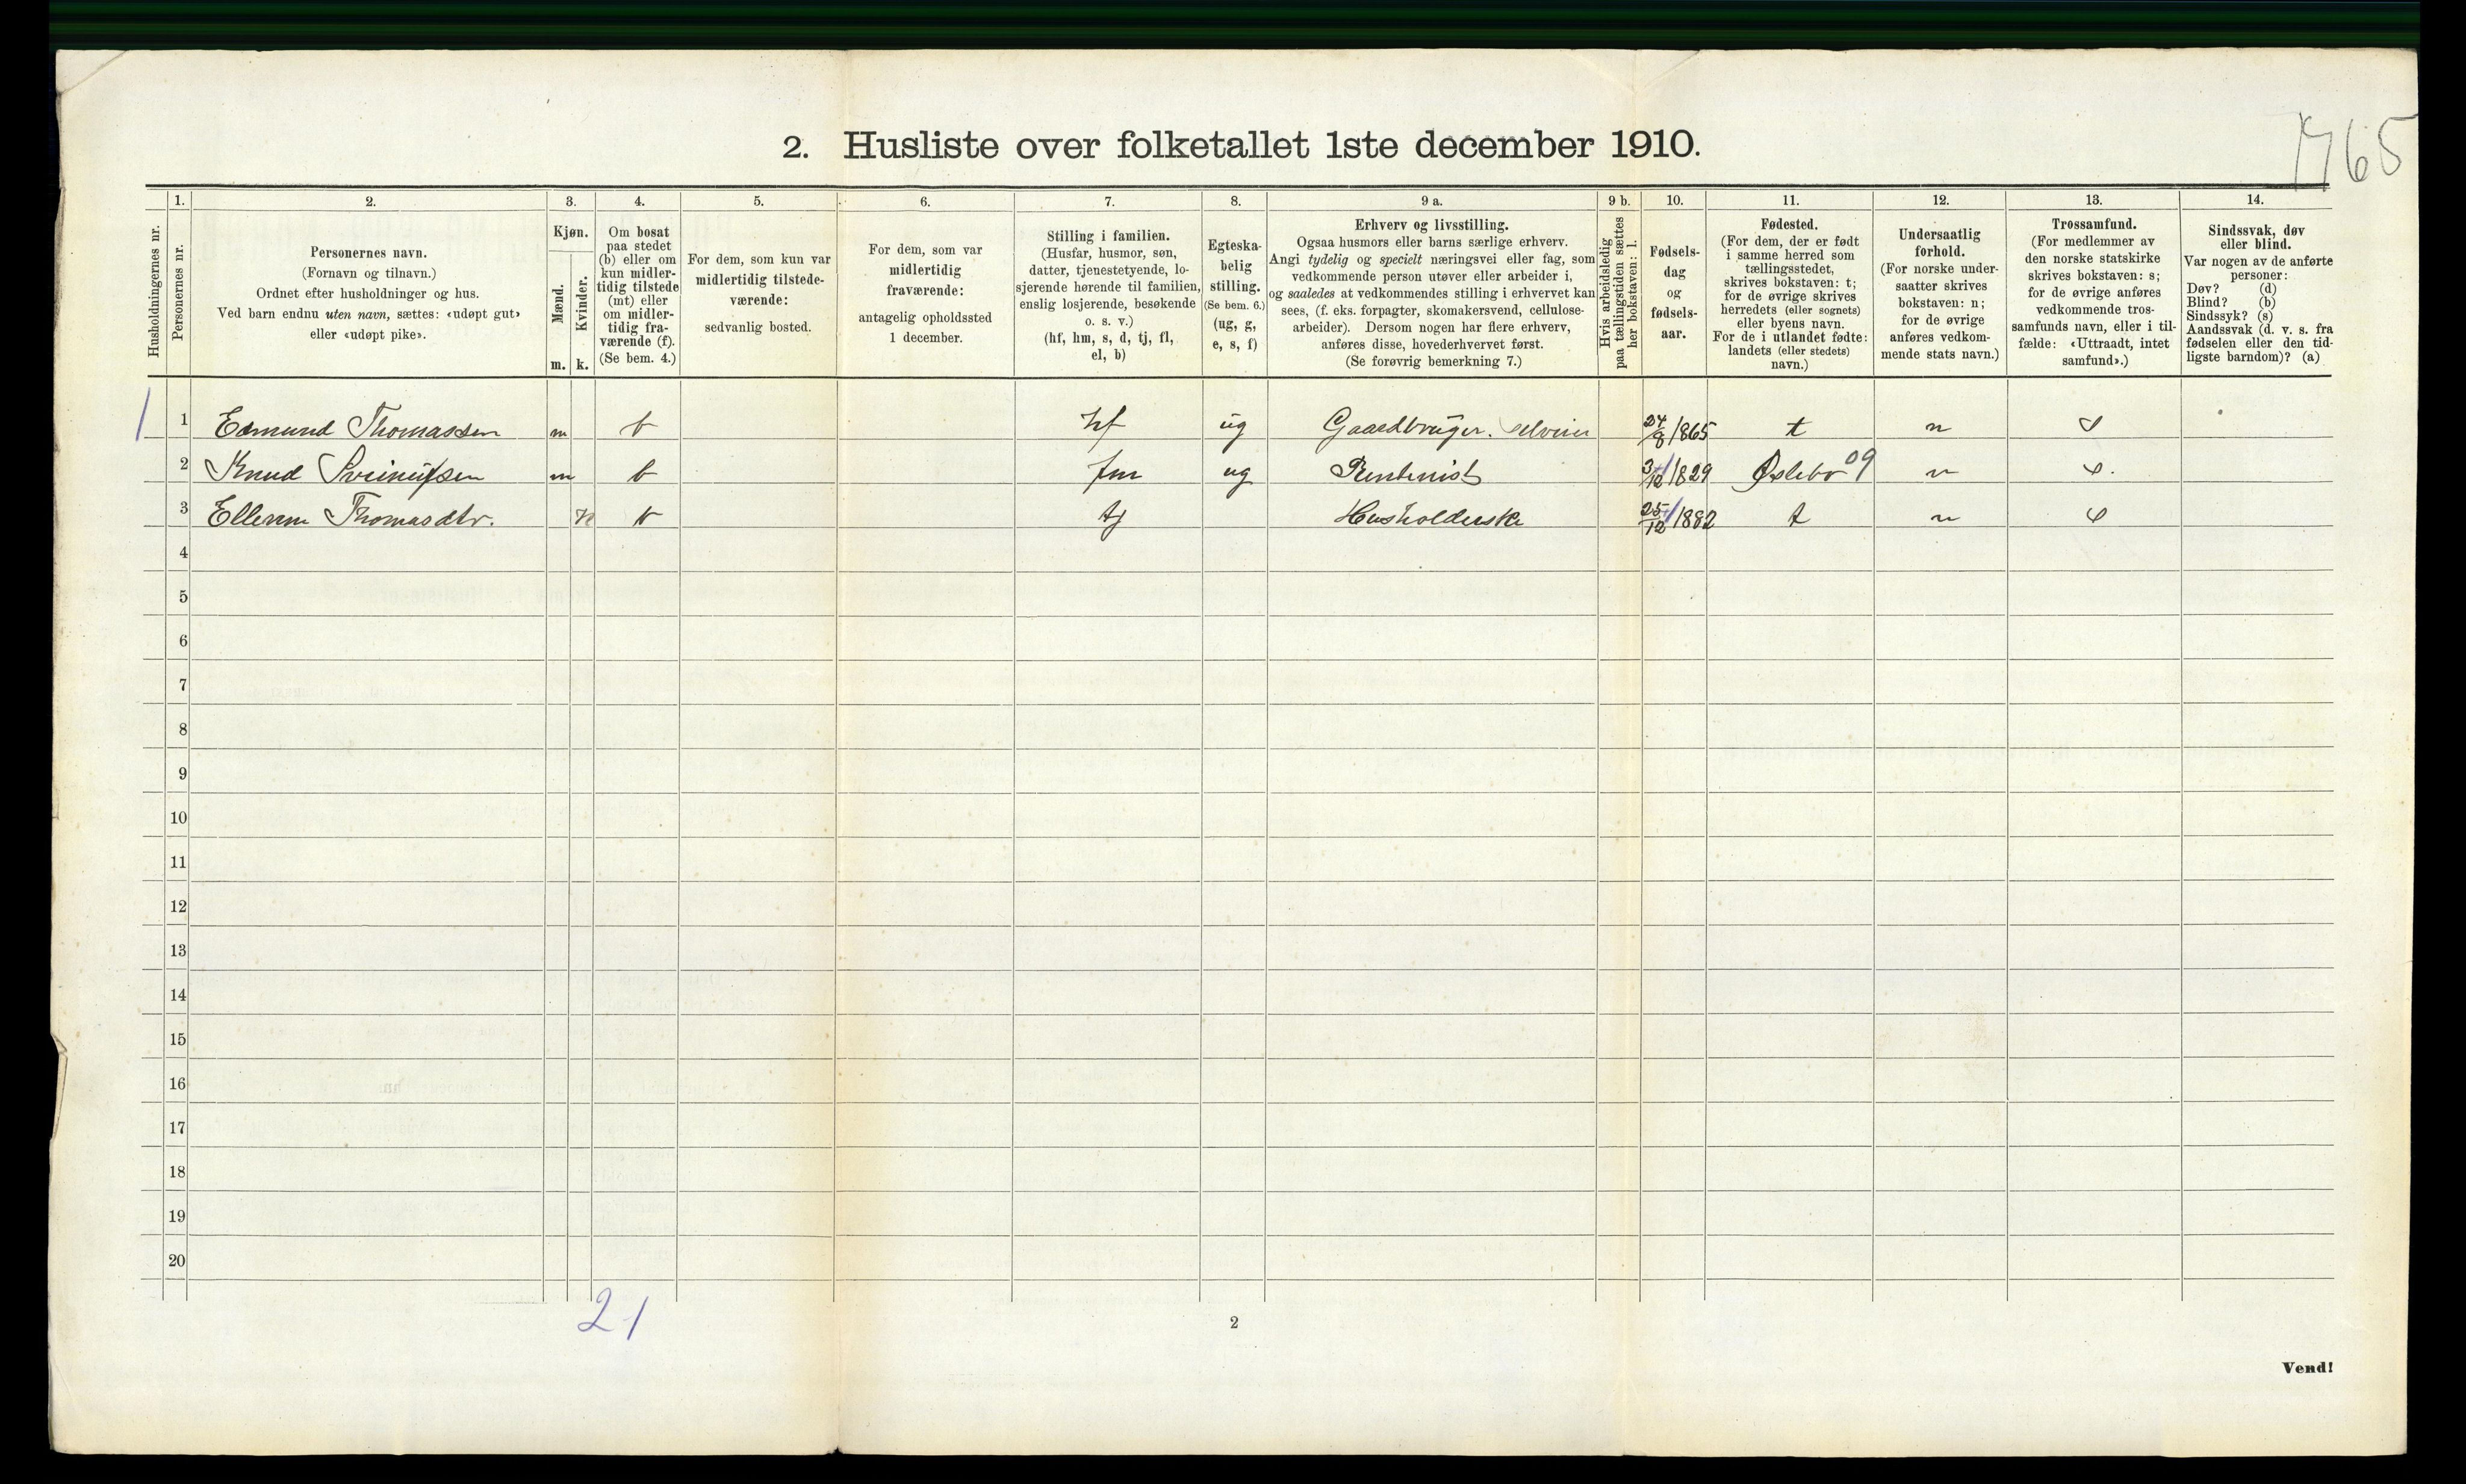 765
2. Husliste over folketallet 1ste december 1910.
Husholdningernes nr.
1.
Personernes nr.
2.
Personernes navn.
(Fornavn og tilnavn.)
Ordnet efter husholdninger og hus.
Ved barn endnu uten navn, sættes: «udøpt gut»
eller «udøpt pike».
3.
Kjøn.
Mænd.
Kvinder.
m. k.
4.
Om bosat
paa stedet
(b) eller om
kun midler-
tidig tilstede
(mt) eller
om midler-
tidig fra-
værende (f).
(Se bem. 4.)
5.
For dem, som kun var
midlertidig tilstede-
værende:
sedvanlig bosted.
6.
For dem, som var
midlertidig
fraværende:
antagelig opholdssted
1 december.
7.
Stilling i familien.
(Husfar, husmor, søn,
datter, tjenestetyende, lo-
sjerende hørende til familien,
enslig losjerende, besøkende
o. s. v.)
(hf, hm, s, d, tj, fl,
el, b)
8.
Egteska-
belig
stilling.
(Se bem. 6.)
(ug, g,
e, s, f)
9 a.
Erhverv og livsstilling.
Ogsaa husmors eller barns særlige erhverv.
Angi tydelig og specielt næringsvei eller fag, som
vedkommende person utøver eller arbeider i,
og saaledes at vedkommendes stilling i erhvervet kan
sees, (f. eks. forpagter, skomakersvend, cellulose-
arbeider). Dersom nogen har flere erhverv,
anføres disse, hovederhvervet først.
(Se forøvrig bemerkning 7.)
9 b.
Hvis arbeidsledig
paa tællingstiden sættes
her bokstaven: l.
10.
Fødsels-
dag
og
fødsels-
aar.
11.
Fødested.
(For dem, der er født
i samme herred som
tællingsstedet,
skrives bokstaven: t;
for de øvrige skrives
herredets (eller sognets)
eller byens navn.
For de i utlandet fødte:
landets (eller stedets)
navn.)
12.
Undersaatlig
forhold.
(For norske under-
saatter skrives
bokstaven: n;
for de øvrige
anføres vedkom-
mende stats navn.)
13.
Trossamfund.
(For medlemmer av
den norske statskirke
skrives bokstaven: s;
for de øvrige anføres
vedkommende tros-
samfunds navn, eller i til-
fælde: «Uttraadt, intet
samfund».)
14.
Sindssvak, døv
eller blind.
Var nogen av de anførte
personer:
Døv? (d)
Blind? (b)
Sindssyk? (s)
Aandssvak (d. v. s. fra
fødselen eller den tid-
ligste barndom)? (a)
1 1 Edmund Thomassen m b hf ug Gaardbruger. selveier 24/8/1865 t n s
2 Knud m b fm ug Rentenist 3/12/1829 Øslebø 09 n s.
3 Thomasdtr. k b tj Husholderske 25/12/1882 t n s
4
5
6
7
8
9
10
11
12
13
14
15
16
17
18
19
20
21
2
Vend!